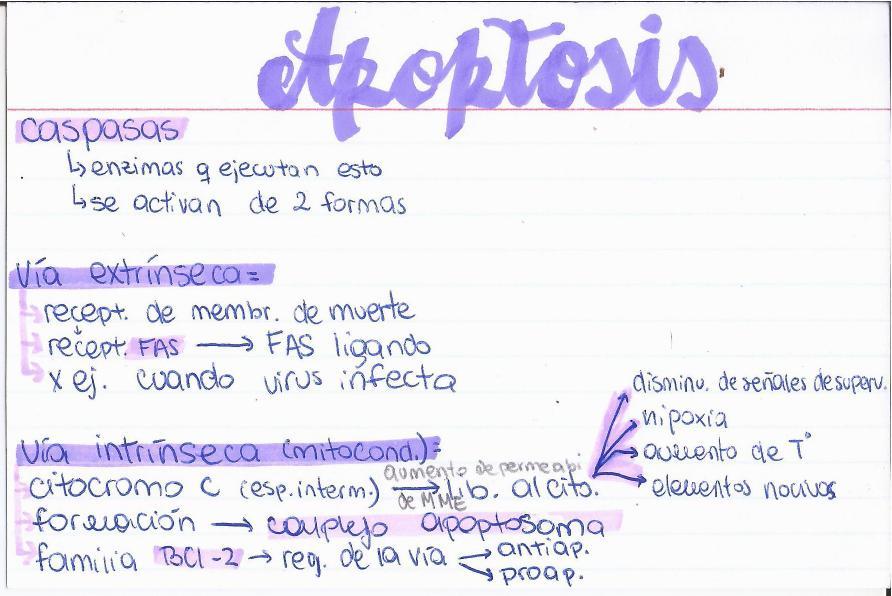 Apoptosis
caspasas
↳ enzimas q ejecutan esto
↳ se activan de 2 formas
Vía extrínseca =
recept. de membr. de muerte
recept. FAS → FAS ligando
x ej. cuando virus infecta
vía intrínseca (mitocond.) =
citocromo C (esp. interm.) → lib. al cito.
aumento de permeabi
de MME
disminu. de señales de superv.
hipoxia
aumento de T°
elementos nocivos
formación → complejo apoptosoma
familia BCl-2 → reg. de la vía → antiap.
→ proap.